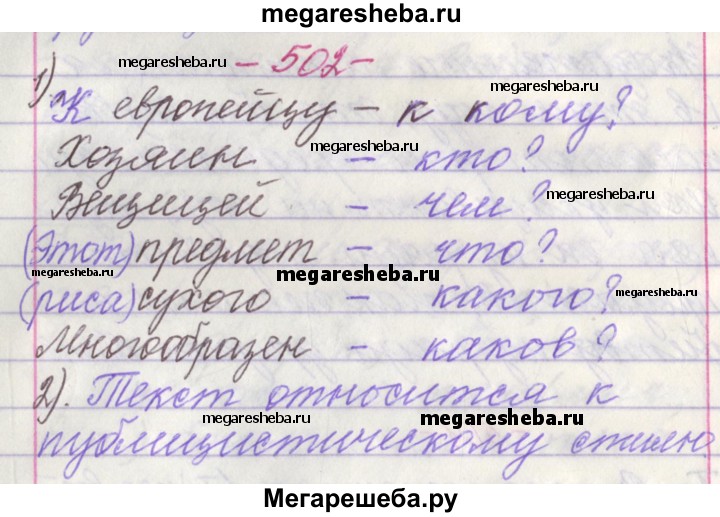 megaresheba.ru
megaresheba.ru
- 502 -
megaresheba.ru
1) К европейцу - к кому?
Хозяин - кто?
megaresheba.ru
Вещицей - чем?
megaresheba.ru
(Этот) предмет - что?
megaresheba.ru
megaresheba.ru
(риса) сухого - какого?
megaresheba.ru
Многообразен - каков?
2). Текст относится к
megaresheba.ru
megaresheba.ru
публицистическому стилю.
Мегарешеба.ру